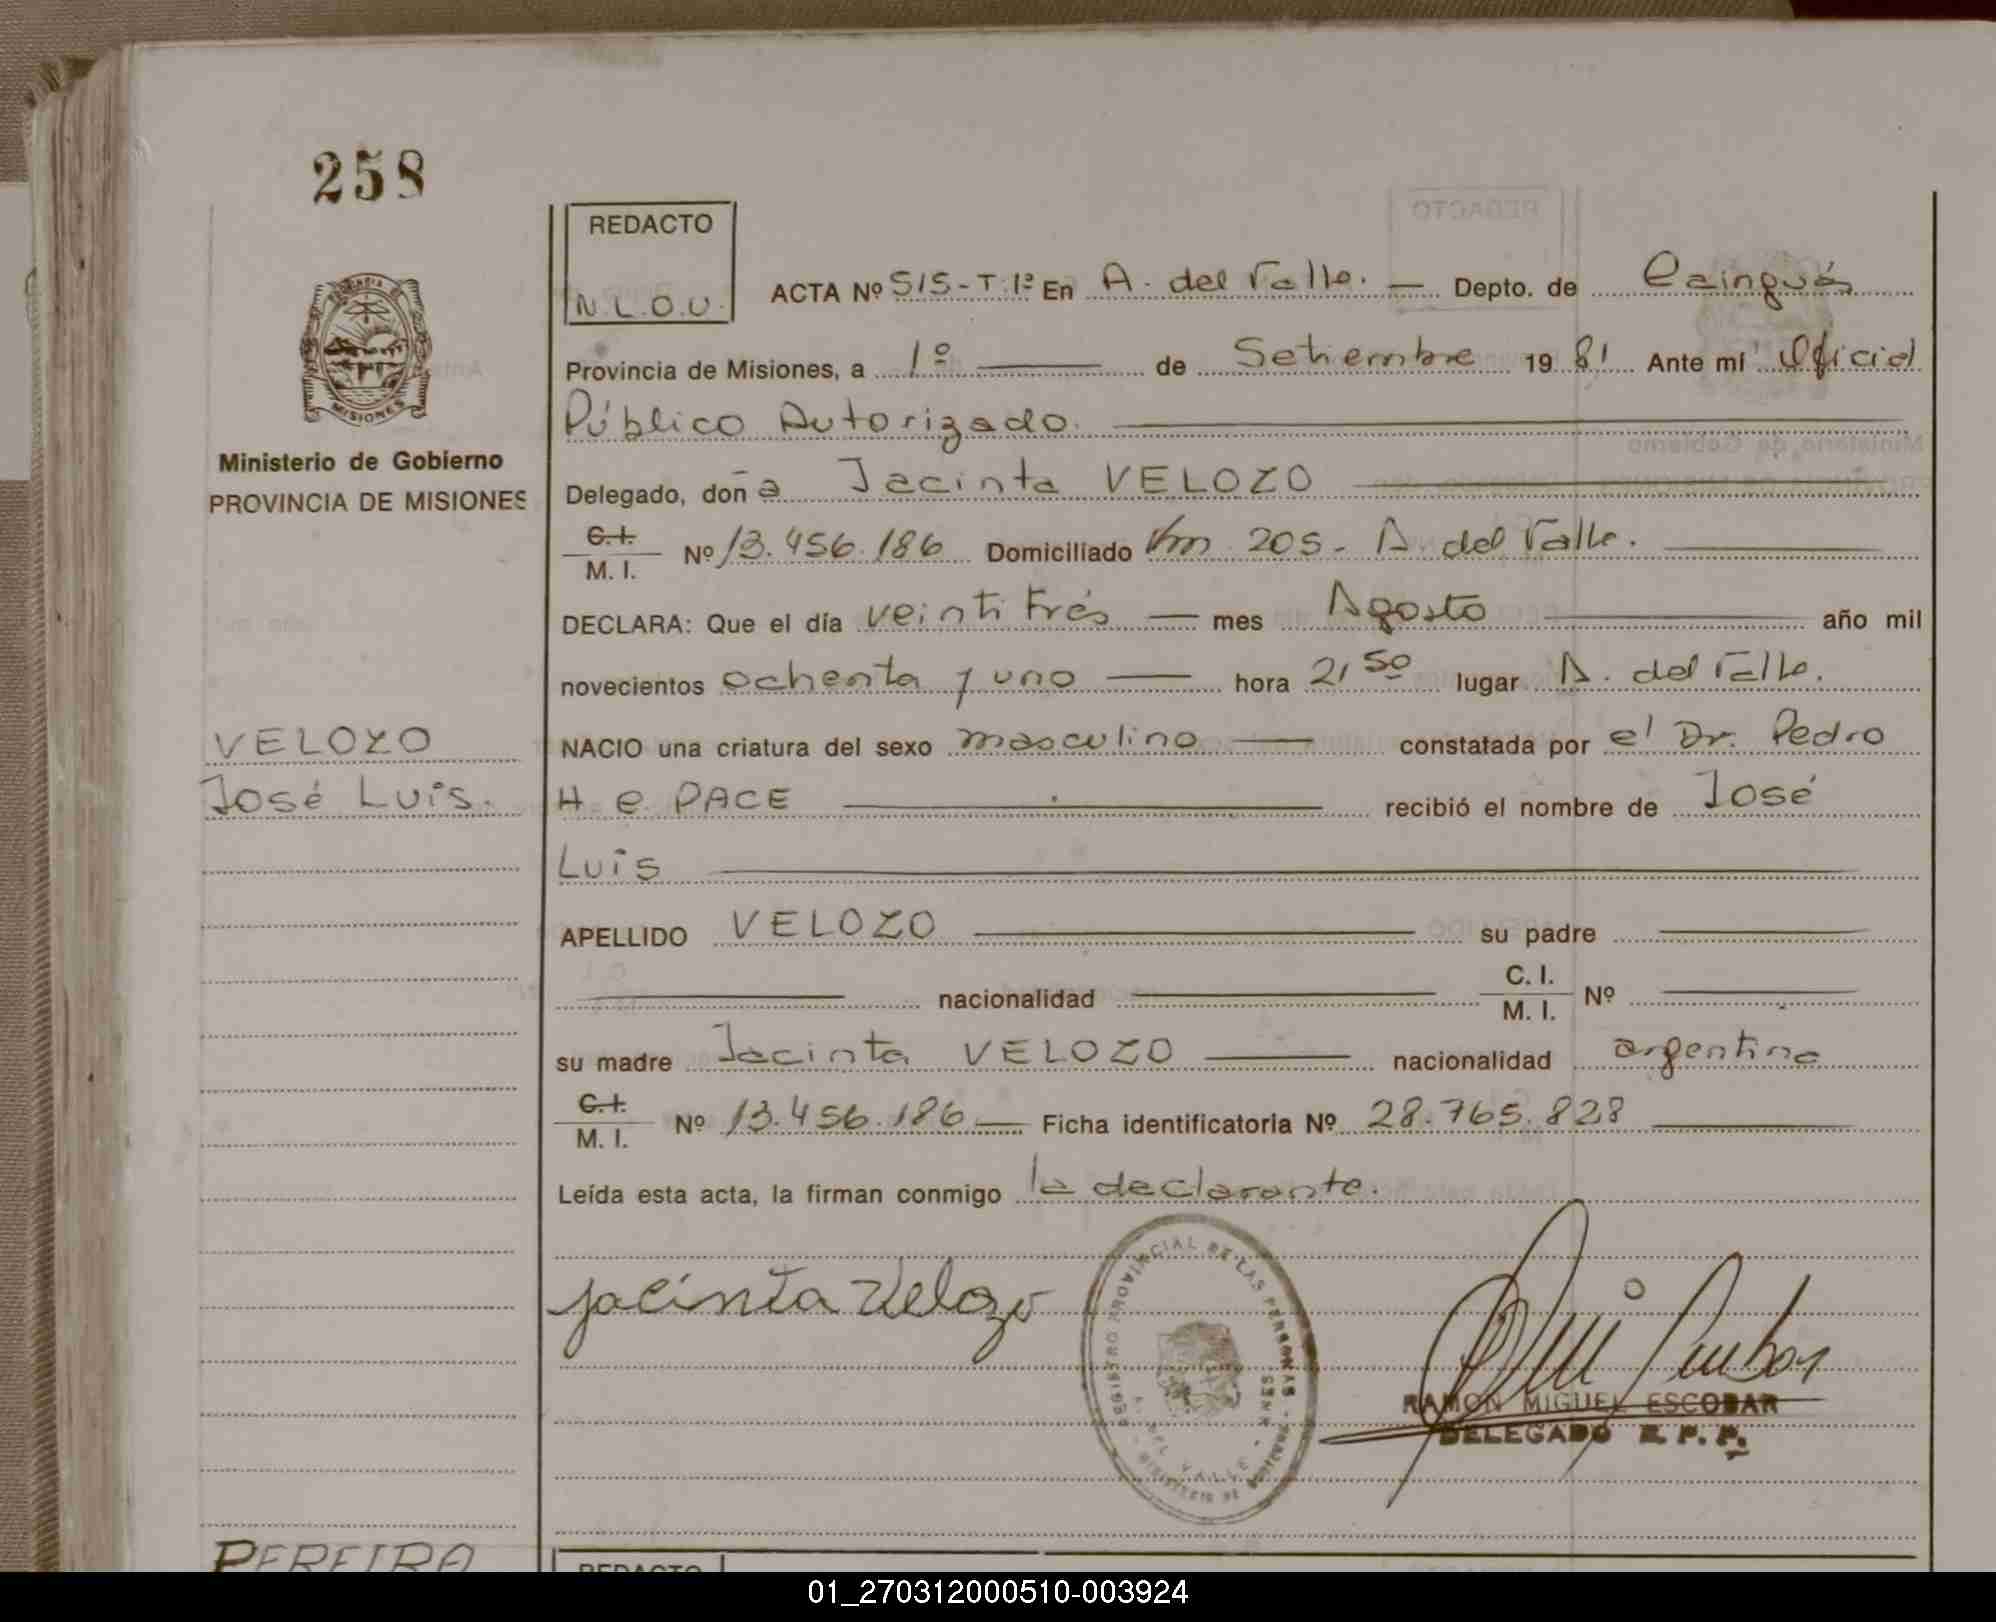 258
REDACTO
N.L.O.U.
ACTA Nº 515-T.1º En A. del Valle. — Depto. de Cainguás
Provincia de Misiones, a 1º — de Setiembre 1981 Ante mí Oficial
Público Autorizado.
Ministerio de Gobierno
PROVINCIA DE MISIONES
Delegado, doña Jacinta VELOZO
C.I. / M. I. Nº 13.456.186 Domiciliado Km 205 - A. del Valle.
DECLARA: Que el día veintitrés — mes Agosto — año mil
novecientos ochenta y uno — hora 21 50 lugar A. del Valle.
VELOZO
José Luis.
NACIO una criatura del sexo masculino — constatada por el Dr. Pedro
H e PACE — recibió el nombre de José
Luis
APELLIDO VELOZO — su padre —
— nacionalidad — C. I. / M. I. Nº —
su madre Jacinta VELOZO — nacionalidad argentina
C.I. / M. I. Nº 13.456.186 — Ficha identificatoria Nº 28.765.828 —
Leída esta acta, la firman conmigo la declarante.
jacinta Velozo
REGISTRO PROVINCIAL DE LAS PERSONAS
A. DEL VALLE
RAMON MIGUEL ESCOBAR
DELEGADO R. P. P.
PEREIRA
REDACTO
01_270312000510-003924